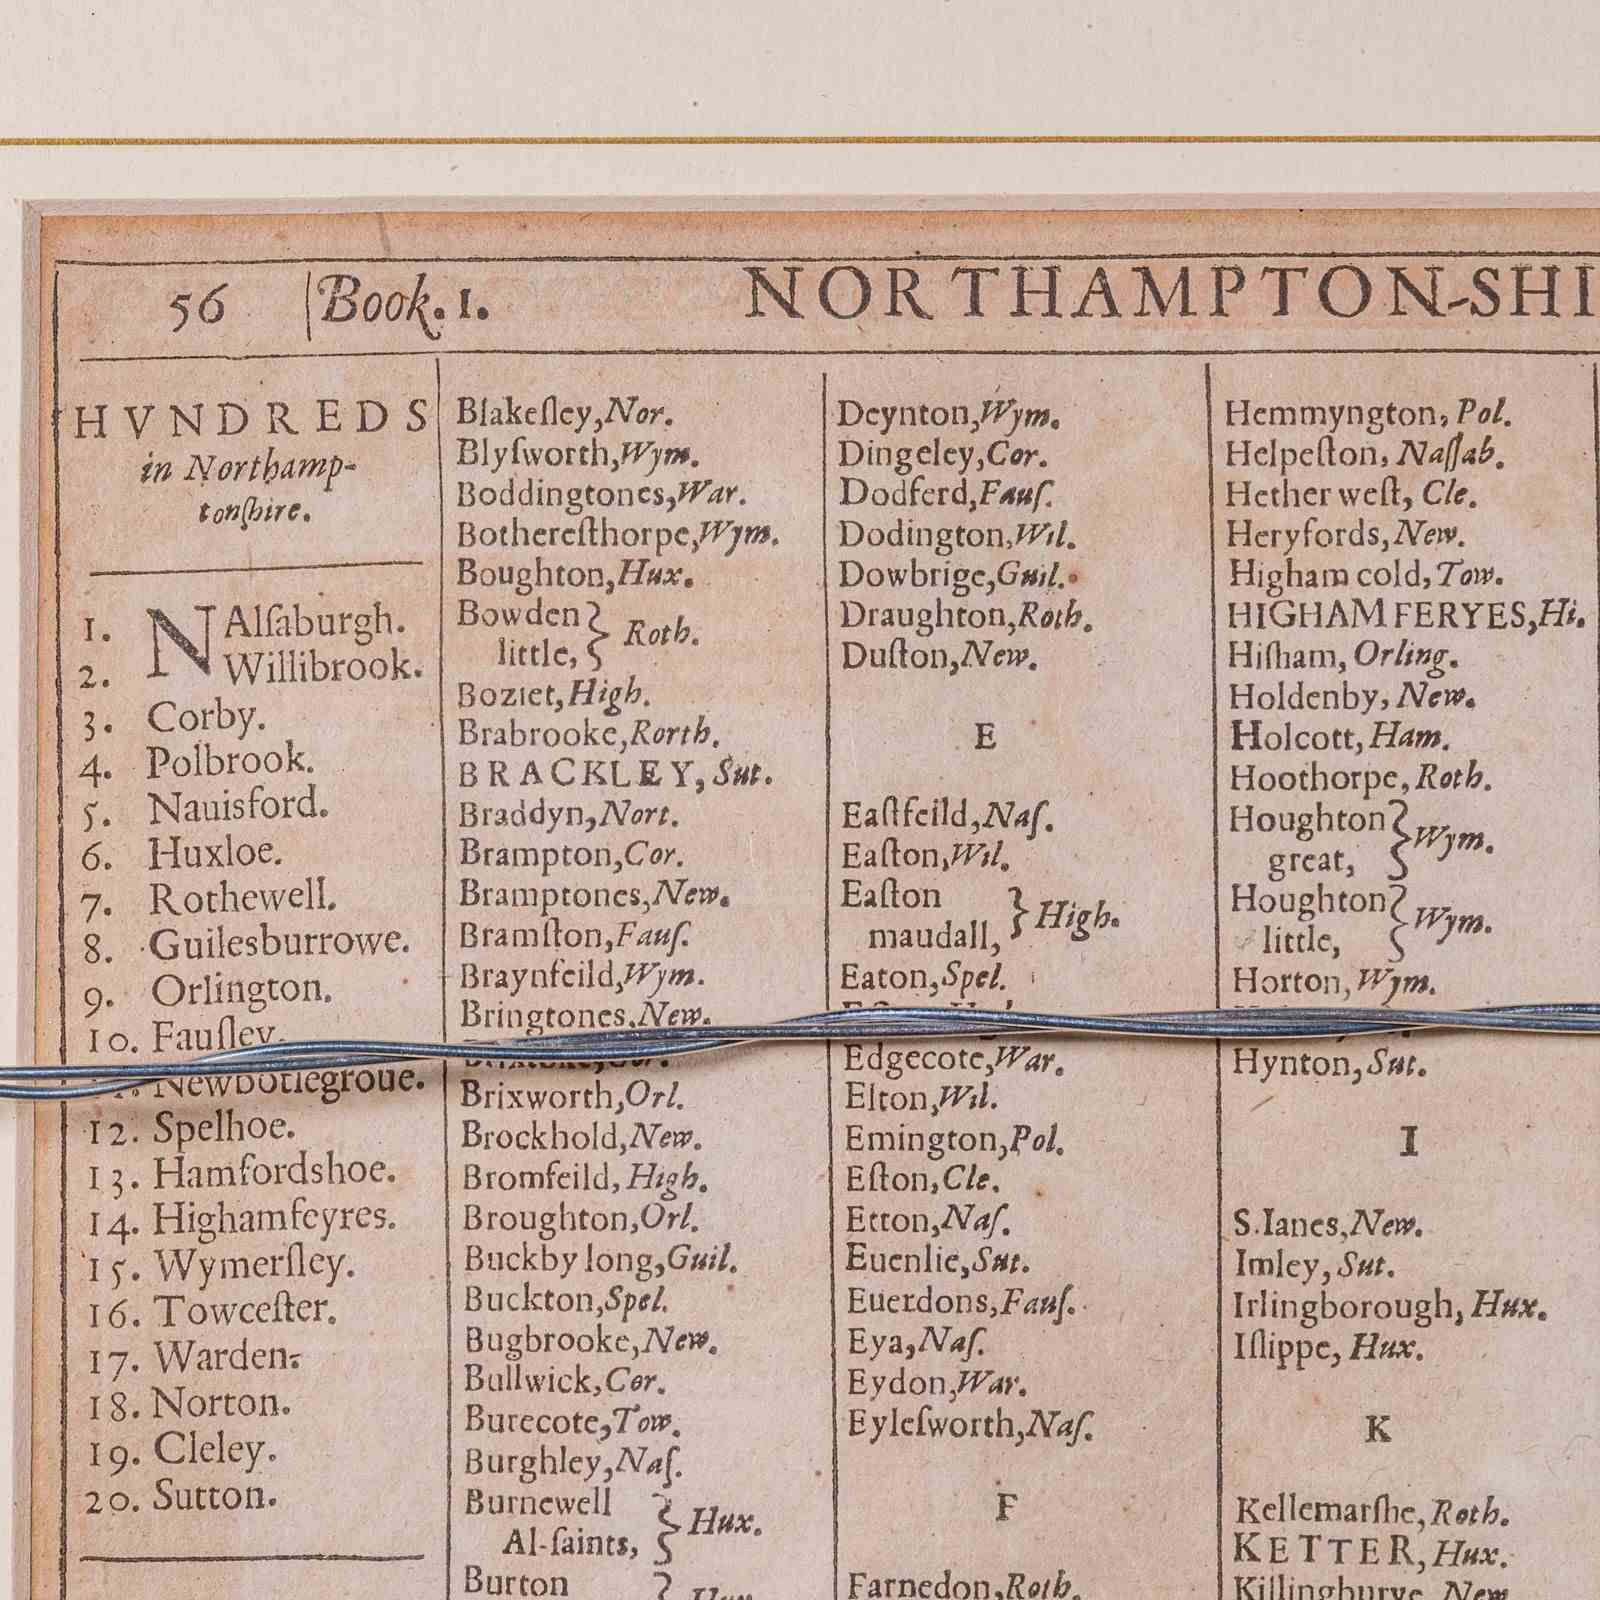 56 Book. 1. NORTHAMPTON-SHI
HVNDREDS
in Northamp-
tonſhire.
1. NAlſaburgh.
2. Willibrook.
3. Corby.
4. Polbrook.
5. Nauisford.
6. Huxloe.
7. Rothewell.
8. Guilesburrowe.
9. Orlington.
10. Fauſley.
Newbotlegroue.
12. Spelhoe.
13. Hamfordshoe.
14. Highamfeyres.
15. Wymerſley.
16. Towceſter.
17. Warden.
18. Norton.
19. Cleley.
20. Sutton.
Blakeſley, Nor.
Blyſworth, Wym.
Boddingtones, War.
Bothereſthorpe, Wym.
Boughton, Hux.
Bowden
little, } Roth.
Boziet, High.
Brabrooke, Rorth.
BRACKLEY, Sut.
Braddyn, Nort.
Brampton, Cor.
Bramptones, New.
Bramſton, Fauſ.
Braynfeild, Wym.
Bringtones, New.
Brixworth, Orl.
Brockhold, New.
Bromfeild, High.
Broughton, Orl.
Buckby long, Guil.
Buckton, Spel.
Bugbrooke, New.
Bullwick, Cor.
Burecote, Tow.
Burghley, Naſ.
Burnewell
Al-ſaints, } Hux.
Burton
Deynton, Wym.
Dingeley, Cor.
Dodferd, Fauſ.
Dodington, Wil.
Dowbrige, Guil.
Draughton, Roth.
Duſton, New.
E
Eaſtfeild, Naſ.
Eaſton, Wil.
Eaſton
maudall, } High.
Eaton, Spel.
Edgecote, War.
Elton, Wil.
Emington, Pol.
Eſton, Cle.
Etton, Naſ.
Euenlie, Sut.
Euerdons, Fauſ.
Eya, Naſ.
Eydon, War.
Eyleſworth, Naſ.
F
Farnedon, Roth.
Hemmyngton, Pol.
Helpeſton, Naſſab.
Hether weſt, Cle.
Heryfords, New.
Higham cold, Tow.
HIGHAM FERYES, Hi.
Hiſham, Orling.
Holdenby, New.
Holcott, Ham.
Hoothorpe, Roth.
Houghton
great, } Wym.
Houghton
little, } Wym.
Horton, Wym.
Hynton, Sut.
I
S. Ianes, New.
Imley, Sut.
Irlingborough, Hux.
Iſlippe, Hux.
K
Kellemarſhe, Roth.
KETTER, Hux.
Killingburye, New